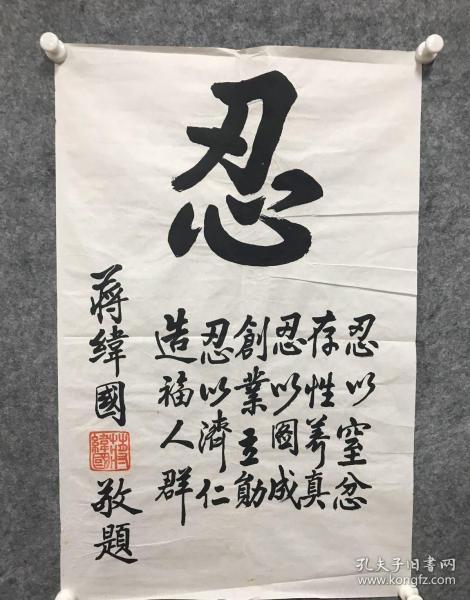 忍
忍以窒忿
存性养真
忍以圖成
創業立勛
忍以濟仁
造福人群
蔣緯國
蔣緯國
敬題
孔夫子旧书网
www.kongfz.com